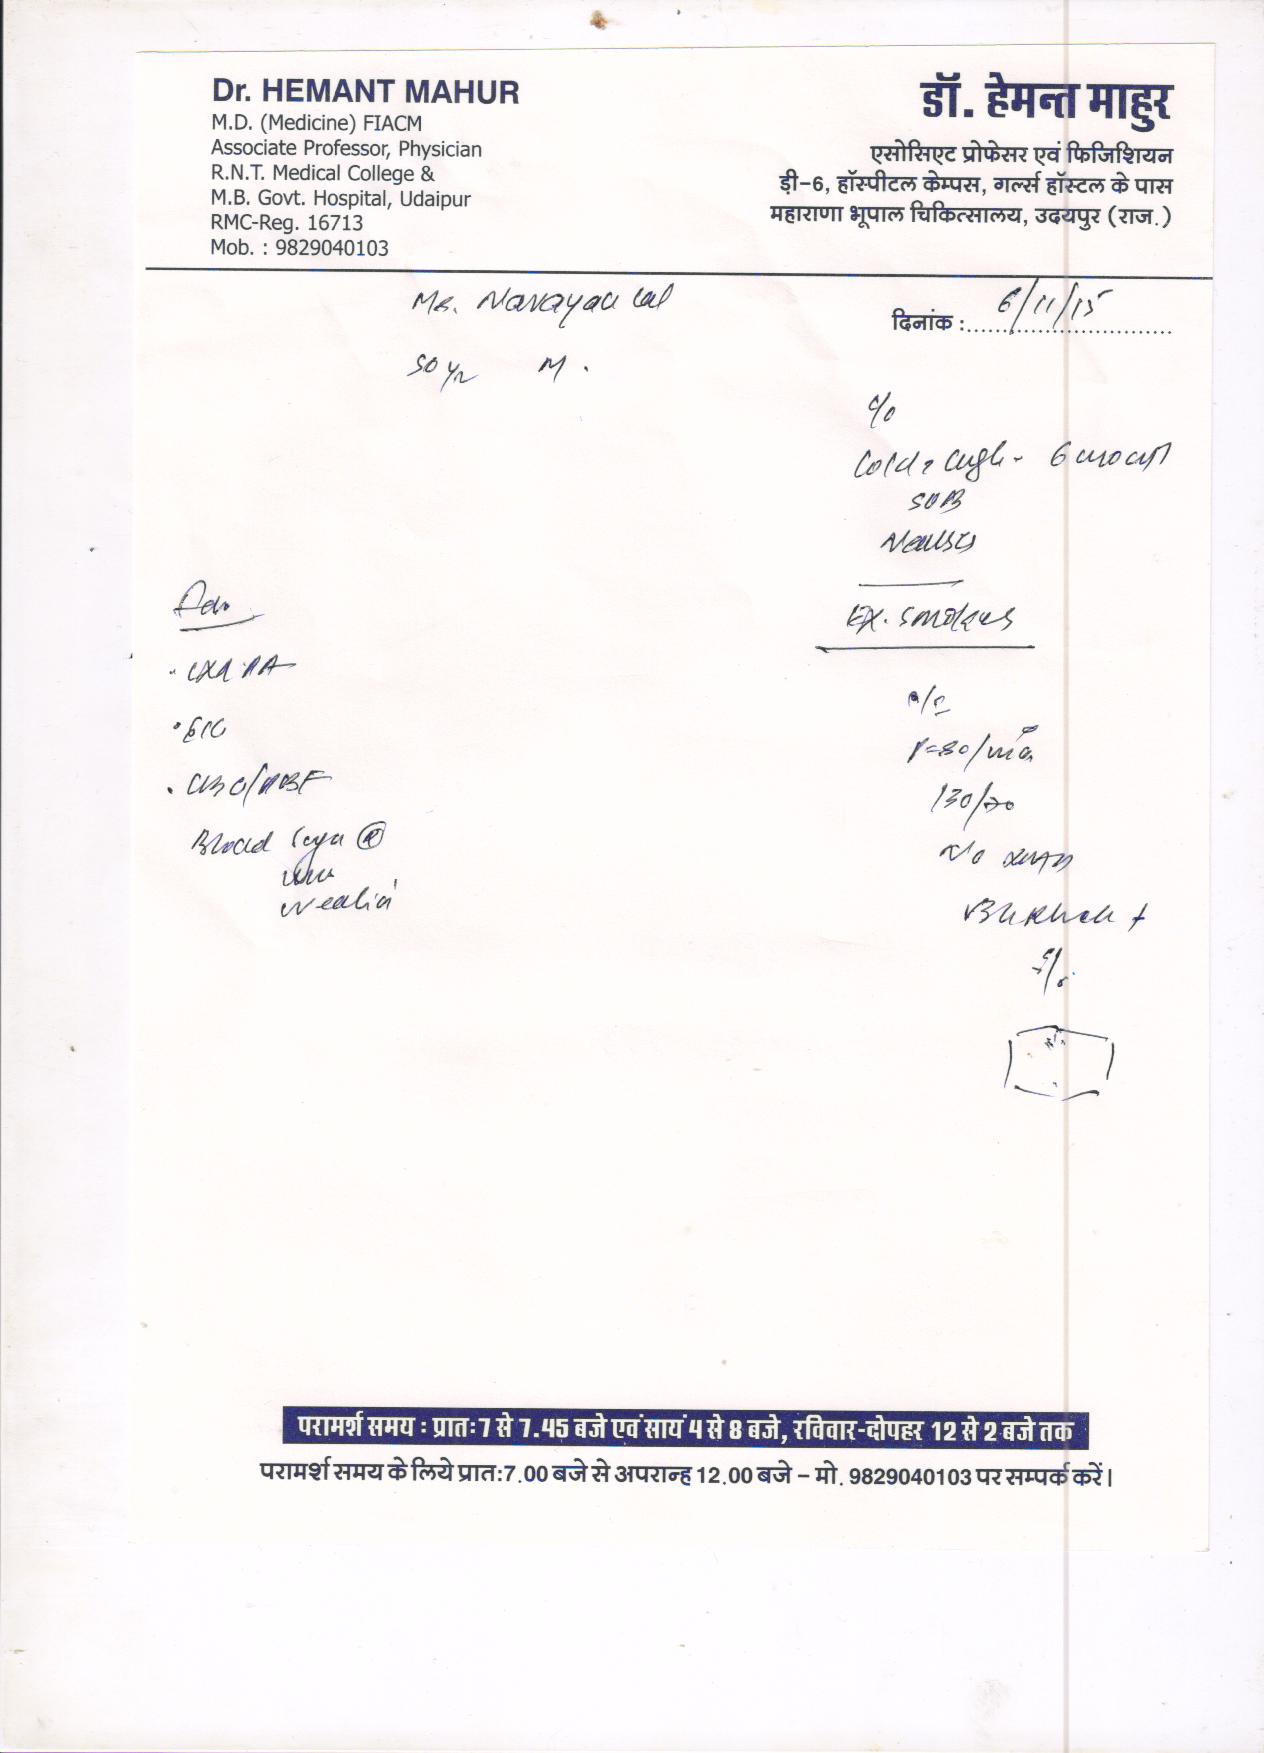 Dr. HEMANT MAHUR
M.D. (Medicine) FIACM
Associate Professor, Physician
R.N.T. Medical College &
M.B. Govt. Hospital, Udaipur
RMC-Reg. 16713
Mob. : 9829040103
डॉ. हेमन्त माहुर
एसोसिएट प्रोफेसर एवं फिजिशियन
ड़ी-6, हॉस्पीटल केम्पस, गर्ल्स हॉस्टल के पास
महाराणा भूपाल चिकित्सालय, उदयपुर (राज.)
Mr. Narayan Lal
दिनांक : 6/11/15
50 yr M.
c/o
Cold, cough - 6 month
SOB
Nausea
Ex. smoker
Adv.
. CXR PA
. ECG
. CBC/PBF
Blood Sugar (R)
Urea
Creatinine
P=80/min
130/70
परामर्श समय : प्रातः 7 से 7.45 बजे एवं सायं 4 से 8 बजे, रविवार-दोपहर 12 से 2 बजे तक
परामर्श समय के लिये प्रात:7.00 बजे से अपरान्ह 12.00 बजे – मो. 9829040103 पर सम्पर्क करें।